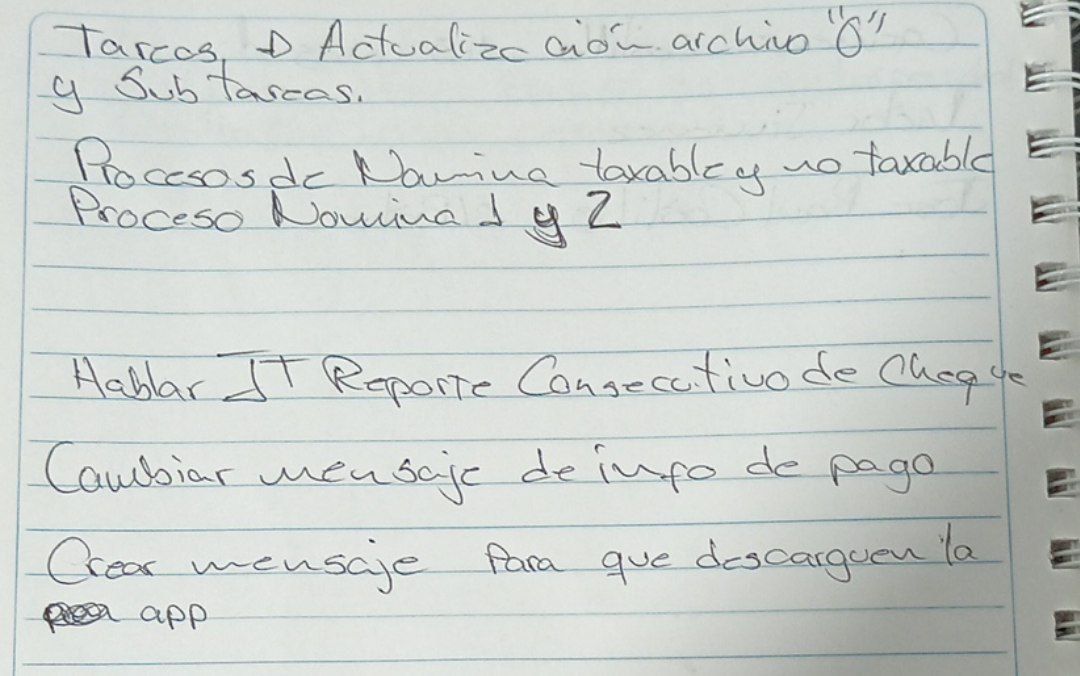 Tareas → Actualización archivo "O"
y Sub tareas.
Procesos de Nomina taxable y no taxable
Proceso Nomina 1 y 2
Hablar IT Reporte Consecutivo de Cheque
Cambiar mensaje de info de pago
Crear mensaje Para que descarguen la
app